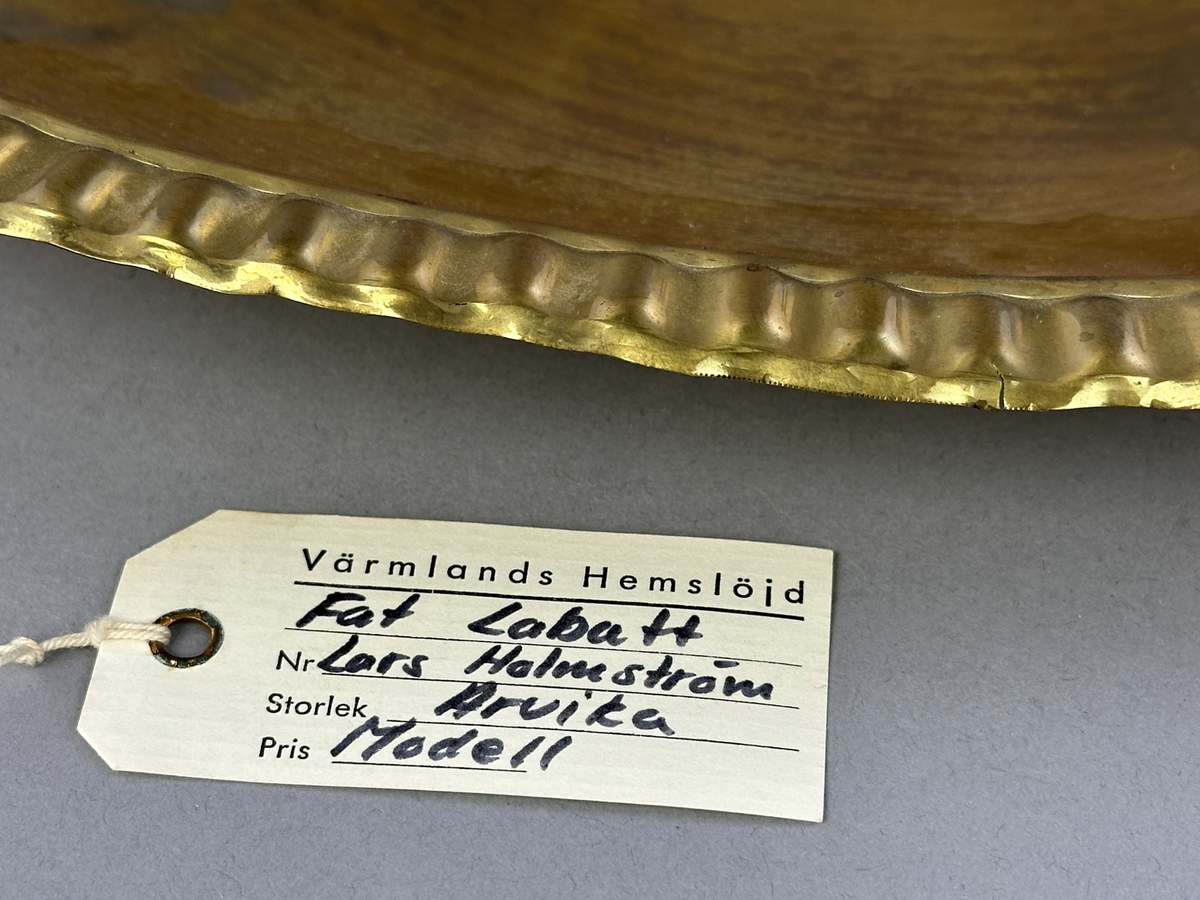 Värmlands Hemslöjd
Fat Labatt
Nr Lars Holmström
Storlek Arvika
Pris Modell